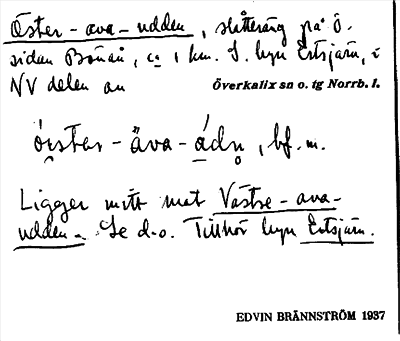 Öster-ava-udden, slåtteräng på ö.
sidan Bönån, ca 1 km. S. byn Ertsjärn, i
NV delen av
Överkalix sn o. tg Norrb. l.
óu̯stər-äva-ádn̥, bf. m.
Ligger mitt mot Västre-ava-
udden. Se d.o. Tillhör byn Ertsjärn.
EDVIN BRÄNNSTRÖM 1937